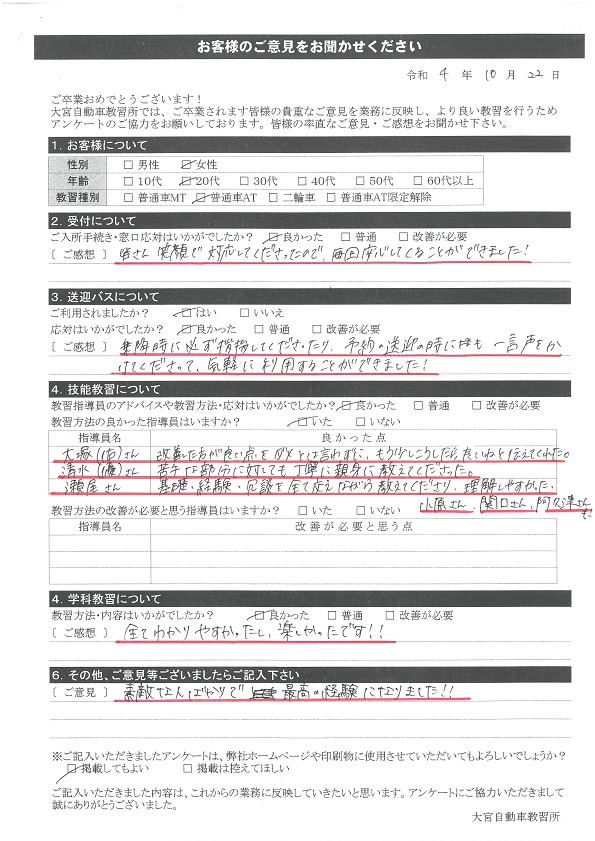 お客様のご意見をお聞かせください
令和 4 年 10 月 22 日
ご卒業おめでとうございます!
大宮自動車教習所では、ご卒業されます皆様の貴重なご意見を業務に反映し、より良い教習を行うため
アンケートのご協力をお願いしております。皆様の率直なご意見・ご感想をお聞かせ下さい。
1. お客様について
性別 □ 男性 ☑ 女性
年齢 □ 10代 ☑ 20代 □ 30代 □ 40代 □ 50代 □ 60代以上
教習種別 □ 普通車MT ☑ 普通車AT □ 二輪車 □ 普通車AT限定解除
2. 受付について
ご入所手続き・窓口応対はいかがでしたか? ☑ 良かった □ 普通 □ 改善が必要
〔 ご感想 〕 皆さん笑顔で対応してくださったので、毎回安心してくることができました!
3. 送迎バスについて
ご利用されましたか? ☑ はい □ いいえ
応対はいかがでしたか? ☑ 良かった □ 普通 □ 改善が必要
〔 ご感想 〕 乗降時に必ず挨拶してくださったり、予約の送迎の時には 一言声をか
けてくださって、気軽に利用することができました!
4. 技能教習について
教習指導員のアドバイスや教習方法・応対はいかがでしたか? ☑ 良かった □ 普通 □ 改善が必要
教習方法の良かった指導員はいますか? ☑ いた □ いない
指導員名 良かった点
大塚(佑)さん 改善した方が良い点をダメとは言わずに、もう少しこうしたら良いねと伝えてくれた。
清水(優)さん 苦手な部分に対しても丁寧に親身に教えてくださった。
瀬尾さん 基礎・経験・冗談を全て応えながら教えてくださり、理解しやすかった。
小原さん、関口さん、阿久津さんも
教習方法の改善が必要と思う指導員はいますか? □ いた □ いない
指導員名 改善が必要と思う点
4. 学科教習について
教習方法・内容はいかがでしたか? ☑ 良かった □ 普通 □ 改善が必要
〔 ご感想 〕 全てわかりやすかったし、楽しかったです!!
6. その他、ご意見等ございましたらご記入下さい
〔 ご意見 〕 素敵な人ばかりで 最高の経験になりました!!
※ご記入いただきましたアンケートは、弊社ホームページや印刷物に使用させていただいてもよろしいでしょうか?
☑ 掲載してもよい □ 掲載は控えてほしい
ご記入いただきました内容は、これからの業務に反映していきたいと思います。アンケートにご協力いただきまして
誠にありがとうございました。
大宮自動車教習所